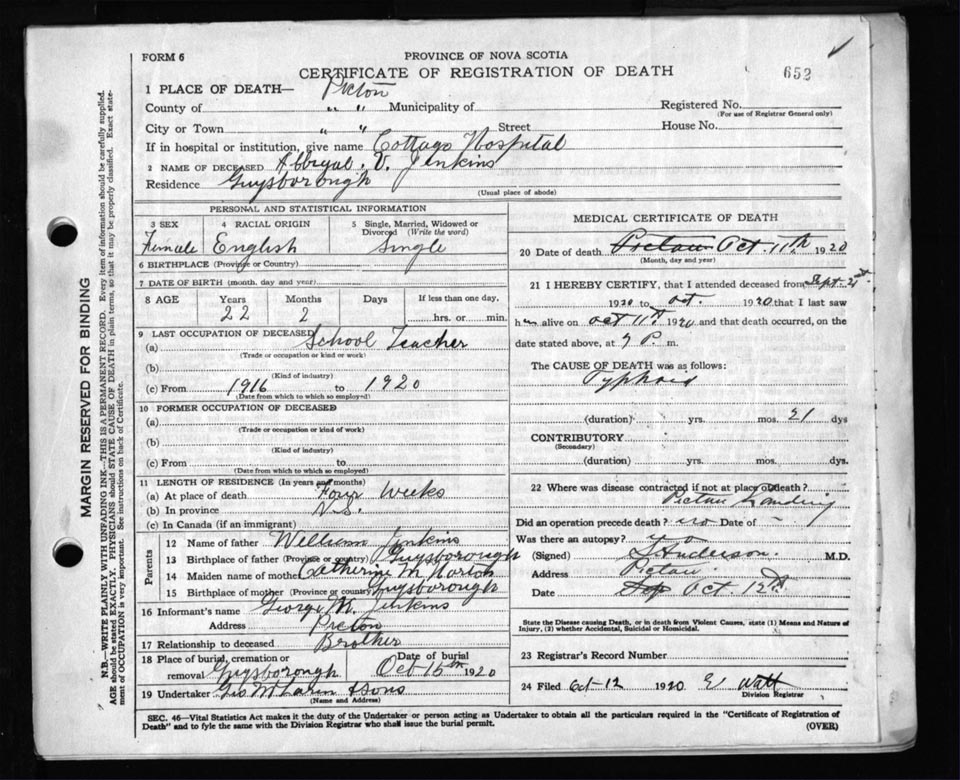 FORM 6
PROVINCE OF NOVA SCOTIA
CERTIFICATE OF REGISTRATION OF DEATH
652
1 PLACE OF DEATH— Picton
County of " " Municipality of Registered No.
(For use of Registrar General only)
City or Town " " Street House No.
If in hospital or institution, give name Cottage Hospital
2 NAME OF DECEASED Abbigal. V. Jenkins
Residence Guysborough
(Usual place of abode)
PERSONAL AND STATISTICAL INFORMATION
3 SEX Female
4 RACIAL ORIGIN English
5 Single, Married, Widowed or Divorced (Write the word) Single
6 BIRTHPLACE (Province or Country)
7 DATE OF BIRTH (month, day and year)
8 AGE Years 22 Months 2 Days If less than one day, hrs. or min.
9 LAST OCCUPATION OF DECEASED
(a) School Teacher
(Trade or occupation or kind of work)
(b)
(Kind of industry)
(c) From 1916 to 1920
(Date from which to which so employed)
10 FORMER OCCUPATION OF DECEASED
(a)
(Trade or occupation or kind of work)
(b)
(Kind of industry)
(c) From to
(Date from which to which so employed)
11 LENGTH OF RESIDENCE (In years and months)
(a) At place of death Four Weeks
(b) In province N.S.
(c) In Canada (if an immigrant)
Parents
12 Name of father William Jenkins
13 Birthplace of father (Province or country) Guysborough
14 Maiden name of mother Catherine M Horton
15 Birthplace of mother (Province or country) Guysborough
16 Informant's name George M. Jenkins
Address Picton
17 Relationship to deceased Brother
18 Place of burial, cremation or removal Guysborough
Date of burial Oct 15th 1920
19 Undertaker Geo & Sons
(Name and Address)
MEDICAL CERTIFICATE OF DEATH
20 Date of death Pictou Oct. 11th 1920
(Month, day and year)
21 I HEREBY CERTIFY, that I attended deceased from Sept. 2
1920 to Oct. 1920 that I last saw
her alive on Oct 11th 1920 and that death occurred, on the
date stated above, at P. m.
The CAUSE OF DEATH was as follows:
Typhoid
(duration) yrs. mos. 21 dys
CONTRIBUTORY
(Secondary)
(duration) yrs. mos. dys.
22 Where was disease contracted if not at place of death?
Pictou Landing
Did an operation precede death? no Date of -
Was there an autopsy? no
(Signed) S Anderson. M.D.
Address Pictou
Date Sep Oct. 12th
State the Disease causing Death, or in death from Violent Causes, state (1) Means and Nature of
Injury, (2) whether Accidental, Suicidal or Homicidal.
23 Registrar's Record Number
24 Filed Oct-12 1920 E Watt
Division Registrar
SEC. 46—Vital Statistics Act makes it the duty of the Undertaker or person acting as Undertaker to obtain all the particulars required in the "Certificate of Registration of
Death" and to fyle the same with the Division Registrar who shall issue the burial permit.
(OVER)
MARGIN RESERVED FOR BINDING
N.B.—WRITE PLAINLY WITH UNFADING INK—THIS IS A PERMANENT RECORD. Every item of information should be carefully supplied.
AGE should be stated EXACTLY. PHYSICIANS should STATE CAUSE OF DEATH in plain terms, so that it may be properly classified. Exact state-
ment of OCCUPATION is very important. See instructions on back of Certificate.